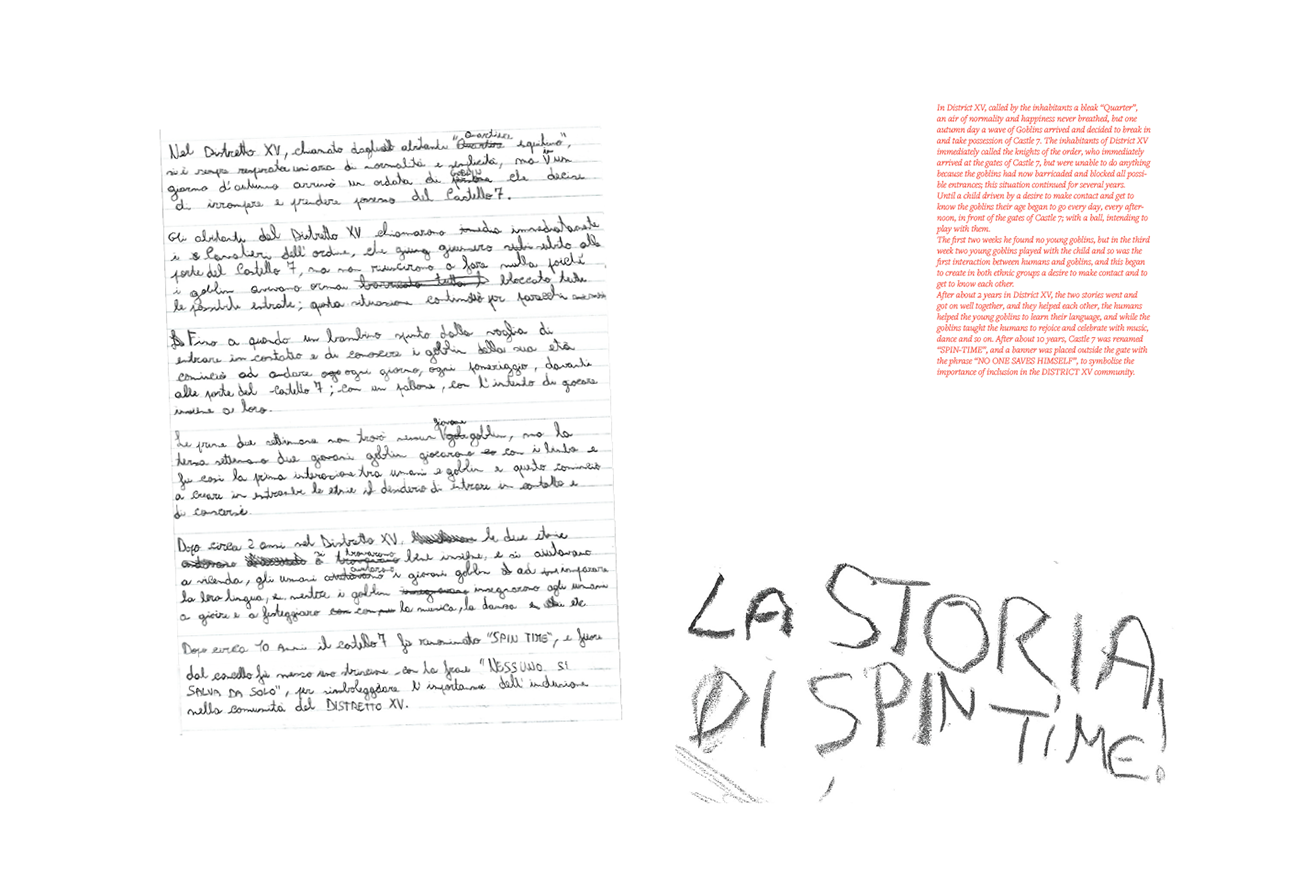 Nel Distretto XV, chiamato dagli abitanti "Quartiere equilino",
si è sempre respirata un'aria di normalità e felicità, ma un
giorno d'autunno arrivò un ordata di GOBLIN che decise
di irrompere e prendere possesso del Castello 7.
Gli abitanti del Distretto XV chiamarono immediatamente
i Cavalieri dell'ordine, che giunsero subito alle
porte del Castello 7, ma non riuscirono a fare nulla poiché
i goblin avevano ormai bloccato tutte
le possibili entrate; questa situazione continuò per parecchi
Fino a quando un bambino spinto dalla voglia di
entrare in contatto e di conoscere i goblin della sua età
cominciò ad andare ogni giorno, ogni pomeriggio, davanti
alle porte del castello 7; con un pallone, con l'intento di giocare
insieme a loro.
Le prime due settimane non trovò nessun giovane goblin, ma la
terza settimana due giovani goblin giocarono con i bimbo e
fu così la prima interazione tra umani e goblin e questo cominciò
a creare in entrambe le etnie il desiderio di entrare in contatto e
di conoscersi.
Dopo circa 2 anni nel Distretto XV, le due etnie
si trovarono bene insieme, e si aiutavano
a vicenda, gli umani aiutarono i giovani goblin ad imparare
la loro lingua, e mentre i goblin insegnarono agli umani
a gioire e a festeggiare la musica, la danza e etc
Dopo circa 10 anni il castello 7 fu rinominato "SPIN TIME", e fuori
dal cancello fu messo uno striscione con la frase "NESSUNO SI
SALVA DA SOLO", per simboleggiare l'importanza dell'inclusione
nella comunità del DISTRETTO XV.
In District XV, called by the inhabitants a bleak "Quarter",
an air of normality and happiness never breathed, but one
autumn day a wave of Goblins arrived and decided to break in
and take possession of Castle 7. The inhabitants of District XV
immediately called the knights of the order, who immediately
arrived at the gates of Castle 7, but were unable to do anything
because the goblins had now barricaded and blocked all possi-
ble entrances; this situation continued for several years.
Until a child driven by a desire to make contact and get to
know the goblins their age began to go every day, every after-
noon, in front of the gates of Castle 7; with a ball, intending to
play with them.
The first two weeks he found no young goblins, but in the third
week two young goblins played with the child and so was the
first interaction between humans and goblins, and this began
to create in both ethnic groups a desire to make contact and to
get to know each other.
After about 2 years in District XV, the two stories went and
got on well together, and they helped each other, the humans
helped the young goblins to learn their language, and while the
goblins taught the humans to rejoice and celebrate with music,
dance and so on. After about 10 years, Castle 7 was renamed
"SPIN-TIME", and a banner was placed outside the gate with
the phrase "NO ONE SAVES HIMSELF", to symbolise the
importance of inclusion in the DISTRICT XV community.
LA STORIA
DI SPIN TIME!